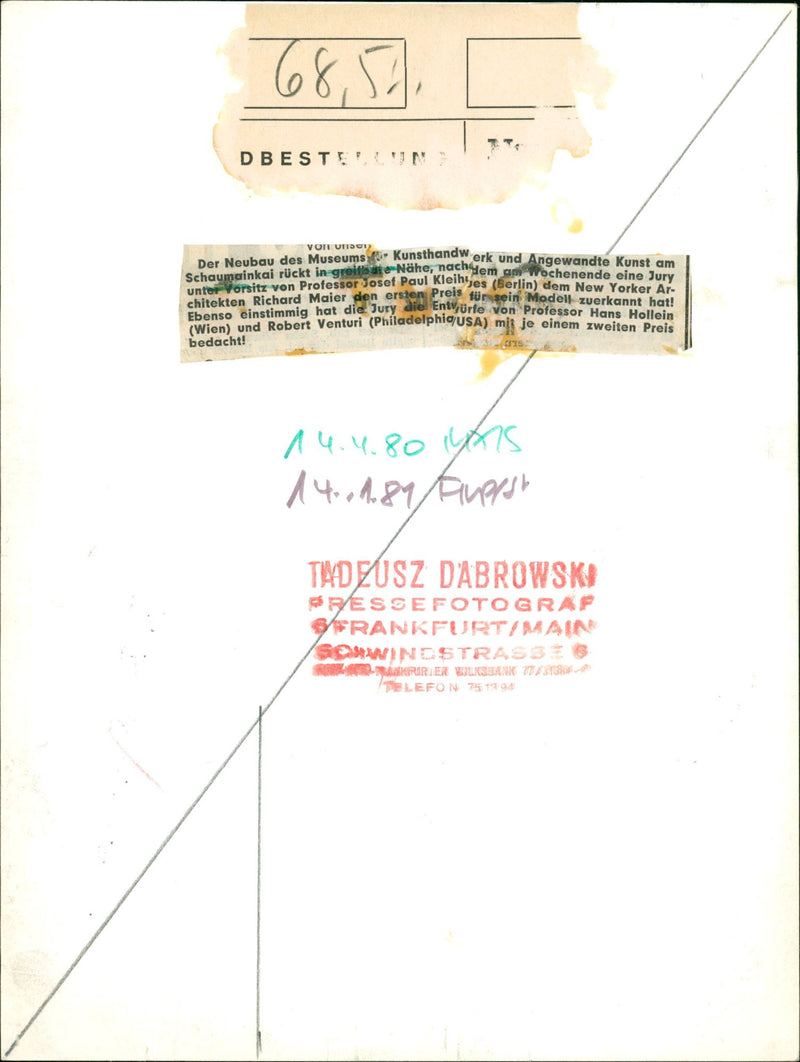 68,5
DBESTELLUNG
Von unser
Der Neubau des Museums für Kunsthandwerk und Angewandte Kunst am
Schaumainkai rückt in greifbare Nähe, nachdem am Wochenende eine Jury
unter Vorsitz von Professor Josef Paul Kleihues (Berlin) dem New Yorker Ar-
chitekten Richard Maier den ersten Preis für sein Modell zuerkannt hat!
Ebenso einstimmig hat die Jury die Entwürfe von Professor Hans Hollein
(Wien) und Robert Venturi (Philadelphia/USA) mit je einem zweiten Preis
bedacht!
14.4.80
14.1.81
TADEUSZ DABROWSKI
PRESSEFOTOGRAF
6 FRANKFURT/MAIN
SCHWINDSTRASSE 6
FRANKFURTER VOLKSBANK
TELEFON 751394